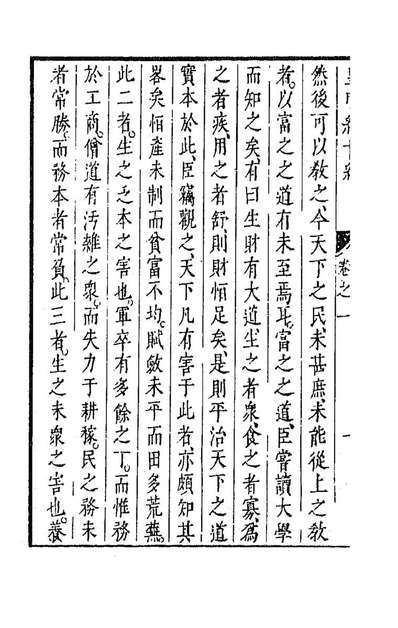 然後可以敎之、今天下之民、未甚庶、未能從上之敎
者、以富之之道有未至焉耳、富之之道、臣嘗讀大學
而知之矣、有曰生財有大道、生之者衆、食之者寡、爲
之者疾、用之者舒、則財恒足矣、是則平治天下之道
實本於此、臣竊觀之、天下凡有害于此者、亦頗知其
畧矣恒產未制而貧富不均、賦斂未平而田多荒蕪、
此二者、生之乏本之害也、軍卒有多餘之丁、而惟務
於工商、僧道有汚雜之衆、而失力于耕稼、民之務末
者常勝、而務本者常負、此三者、生之未衆之害也、養
卷之一